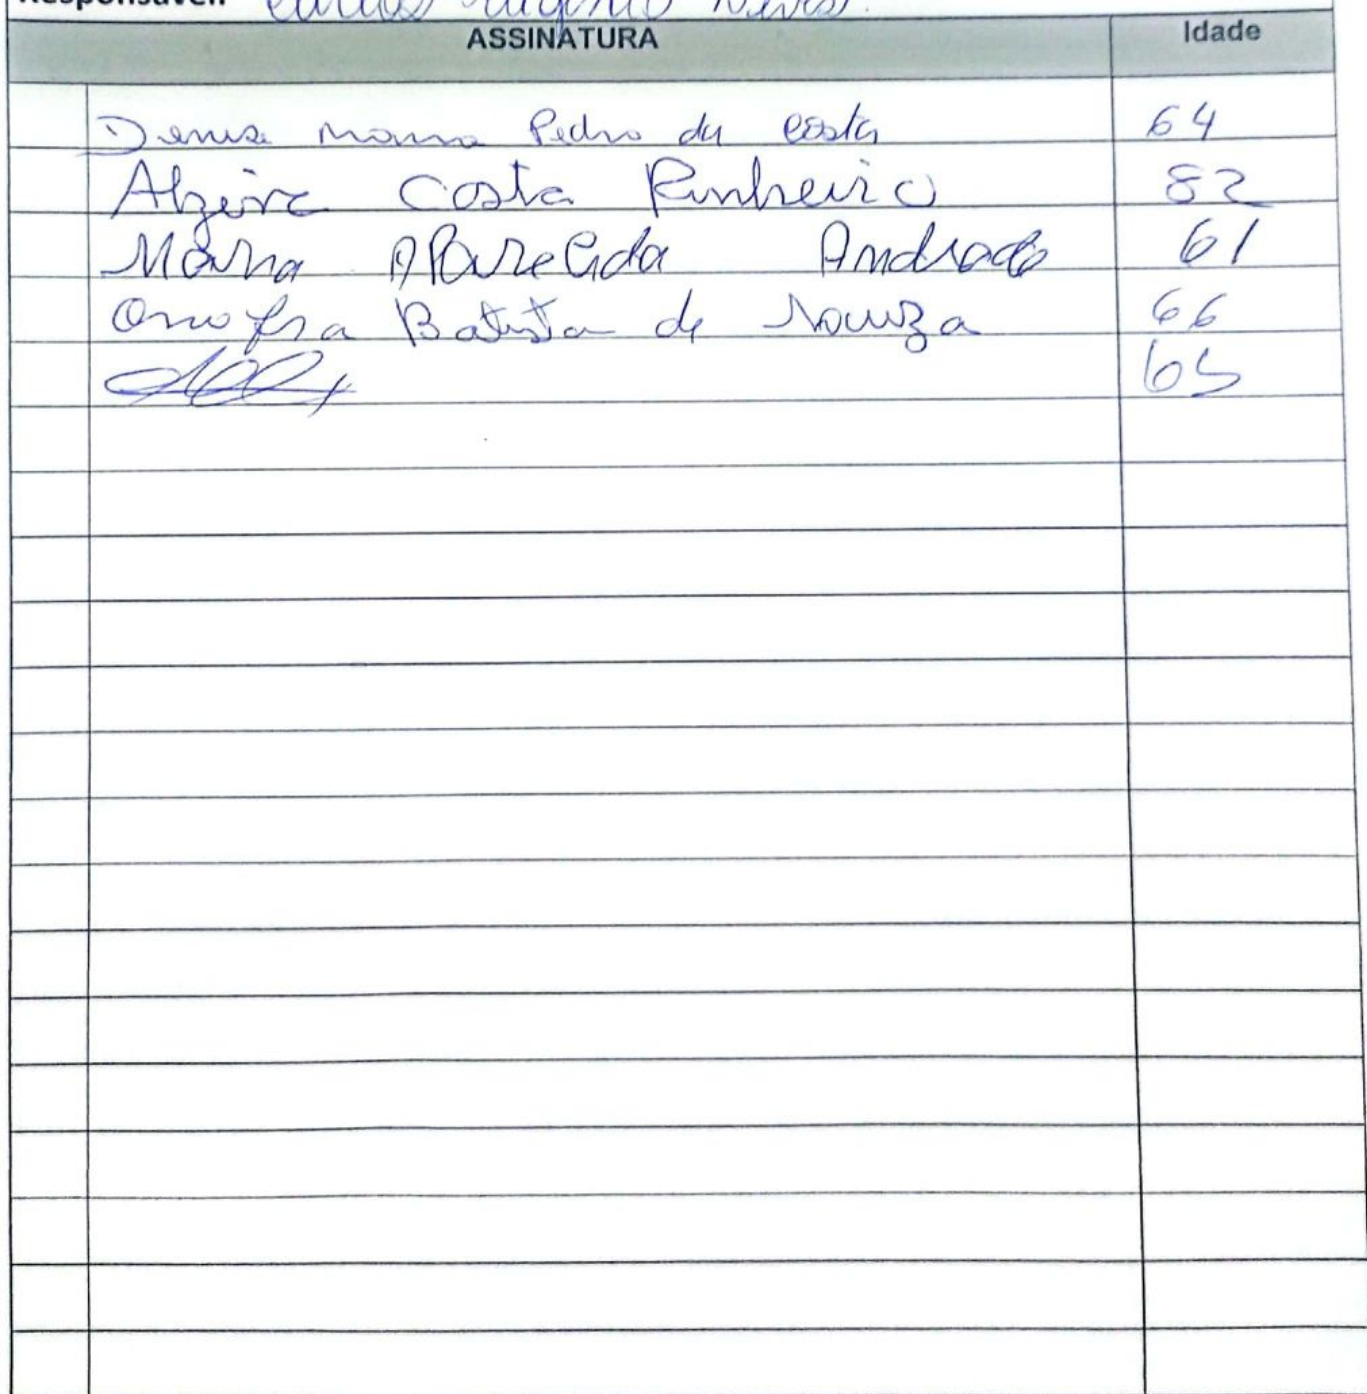 Responsável: Carlos Eugenio Neves.
ASSINATURA Idade
Denise Maria Pedro da Costa 64
Alzira Costa Pinheiro 82
Maria Aparecida Andrade 61
Onofra Batista de Souza 66
65